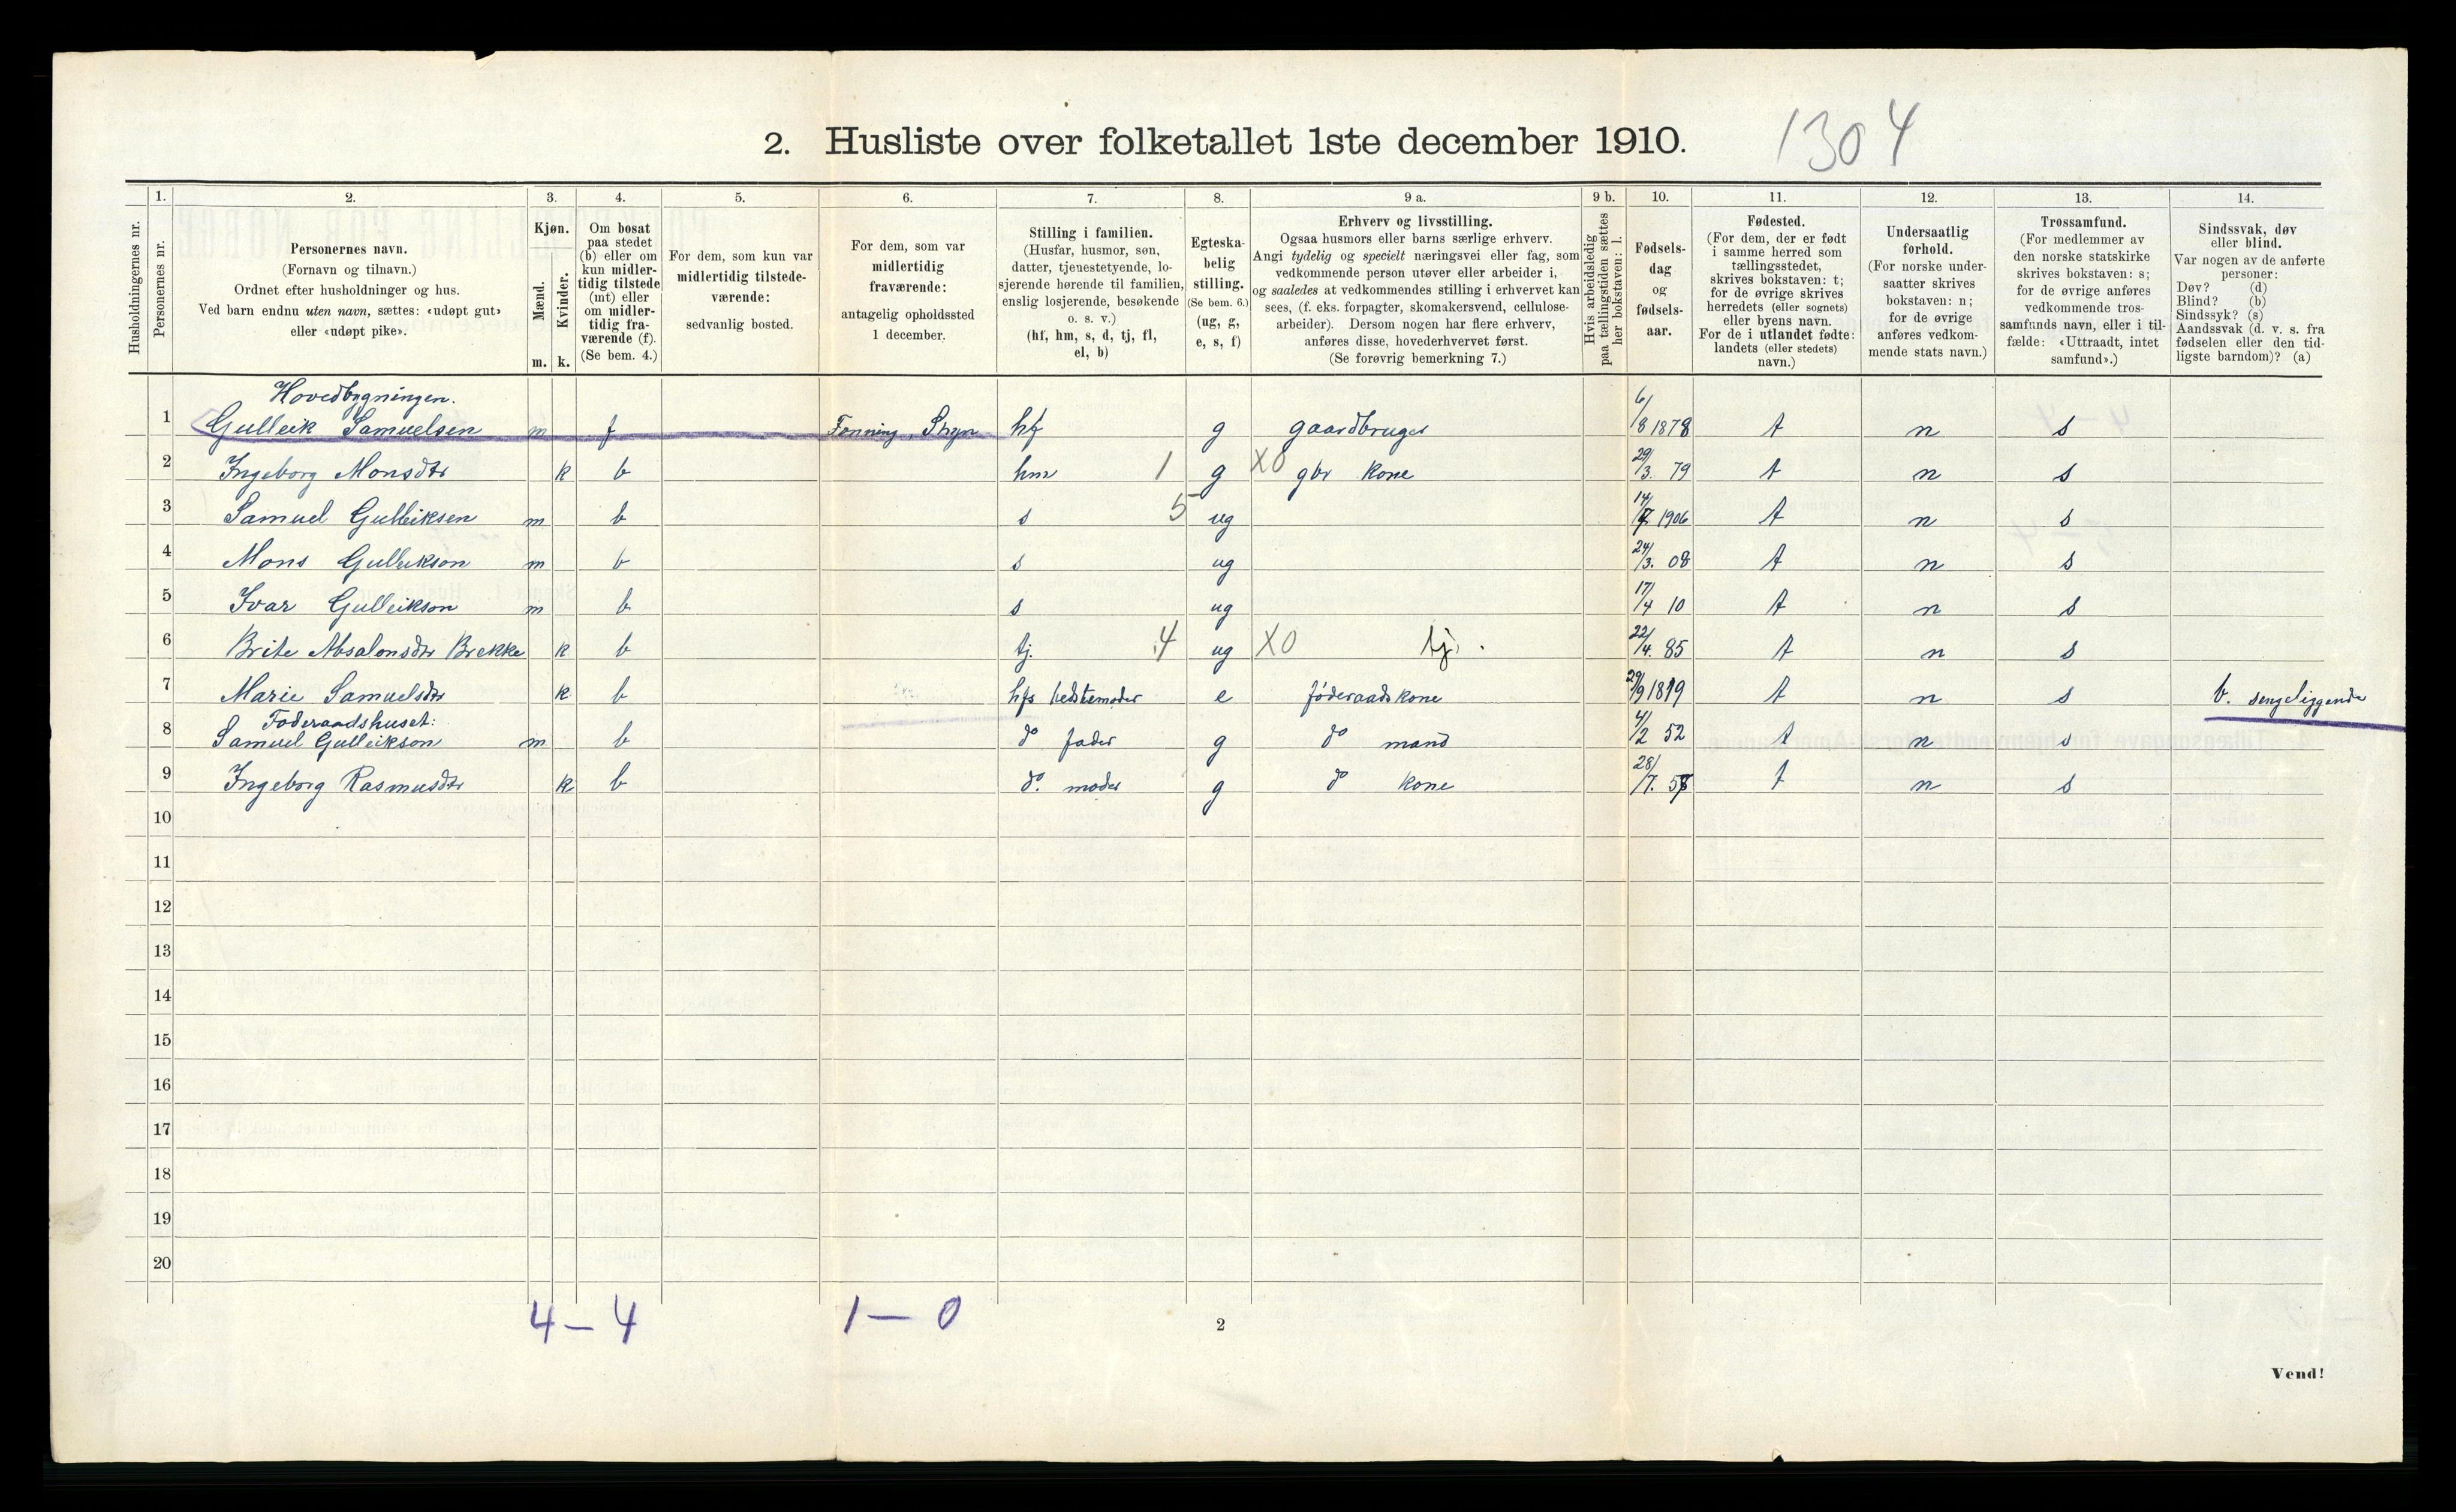 2. Husliste over folketallet 1ste december 1910.
1304
Husholdningernes nr.
1.
Personernes nr.
2.
Personernes navn.
(Fornavn og tilnavn.)
Ordnet efter husholdninger og hus.
Ved barn endnu uten navn, sættes: «udøpt gut»
eller «udøpt pike».
3.
Kjøn.
Mænd.
Kvinder.
m. k.
4.
Om bosat
paa stedet
(b) eller om
kun midler-
tidig tilstede
(mt) eller
om midler-
tidig fra-
værende (f).
(Se bem. 4.)
5.
For dem, som kun var
midlertidig tilstede-
værende:
sedvanlig bosted.
6.
For dem, som var
midlertidig
fraværende:
antagelig opholdssted
1 december.
7.
Stilling i familien.
(Husfar, husmor, søn,
datter, tjenestetyende, lo-
sjerende hørende til familien,
enslig losjerende, besøkende
o. s. v.)
(hf, hm, s, d, tj, fl,
el, b)
8.
Egteska-
belig
stilling.
(Se bem. 6.)
(ug, g,
e, s, f)
9 a.
Erhverv og livsstilling.
Ogsaa husmors eller barns særlige erhverv.
Angi tydelig og specielt næringsvei eller fag, som
vedkommende person utøver eller arbeider i,
og saaledes at vedkommendes stilling i erhvervet kan
sees, (f. eks. forpagter, skomakersvend, cellulose-
arbeider). Dersom nogen har flere erhverv,
anføres disse, hovederhvervet først.
(Se forøvrig bemerkning 7.)
9 b.
Hvis arbeidsledig
paa tællingstiden sættes
her bokstaven: l.
10.
Fødsels-
dag
og
fødsels-
aar.
11.
Fødested.
(For dem, der er født
i samme herred som
tællingsstedet,
skrives bokstaven: t;
for de øvrige skrives
herredets (eller sognets)
eller byens navn.
For de i utlandet fødte:
landets (eller stedets)
navn.)
12.
Undersaatlig
forhold.
(For norske under-
saatter skrives
bokstaven: n;
for de øvrige
anføres vedkom-
mende stats navn.)
13.
Trossamfund.
(For medlemmer av
den norske statskirke
skrives bokstaven: s;
for de øvrige anføres
vedkommende tros-
samfunds navn, eller i til-
fælde: «Uttraadt, intet
samfund».)
14.
Sindssvak, døv
eller blind.
Var nogen av de anførte
personer:
Døv? (d)
Blind? (b)
Sindssyk? (s)
Aandssvak (d. v. s. fra
fødselen eller den tid-
ligste barndom)? (a)
Hovedbygningen.
1 Gulleik Samuelsen m f hf g gaardbruger 6/8 1878 t n s
2 Ingeborg Monsdtr k b hm 1 g XO gbr kone 29/3. 79 t n s
3 Samuel Gulleiksen m b s 5 ug 14/7 1906 t n s
4 Mons Gulleikson m b s ug 24/3. 08 t n s
5 Ivar Gulleikson m b s ug 17/4 10 t n s
6 Brite Absalonsdtr Brekke k b tj. 4 ug XO tj. 22/4. 85 t n s
7 Marie Samuelsdtr k b hfs bedstemoder e føderaadskone 29/9 1819 t n s b. sengeliggende
Føderaadshuset:
8 Samuel Gulleikson m b do fader g do mand 4/2 52 t n s
9 Ingeborg Rasmusdtr k b do. moder g do kone 28/7. t n s
10
11
12
13
14
15
16
17
18
19
20
4 — 4 1 — 0
2
Vend!